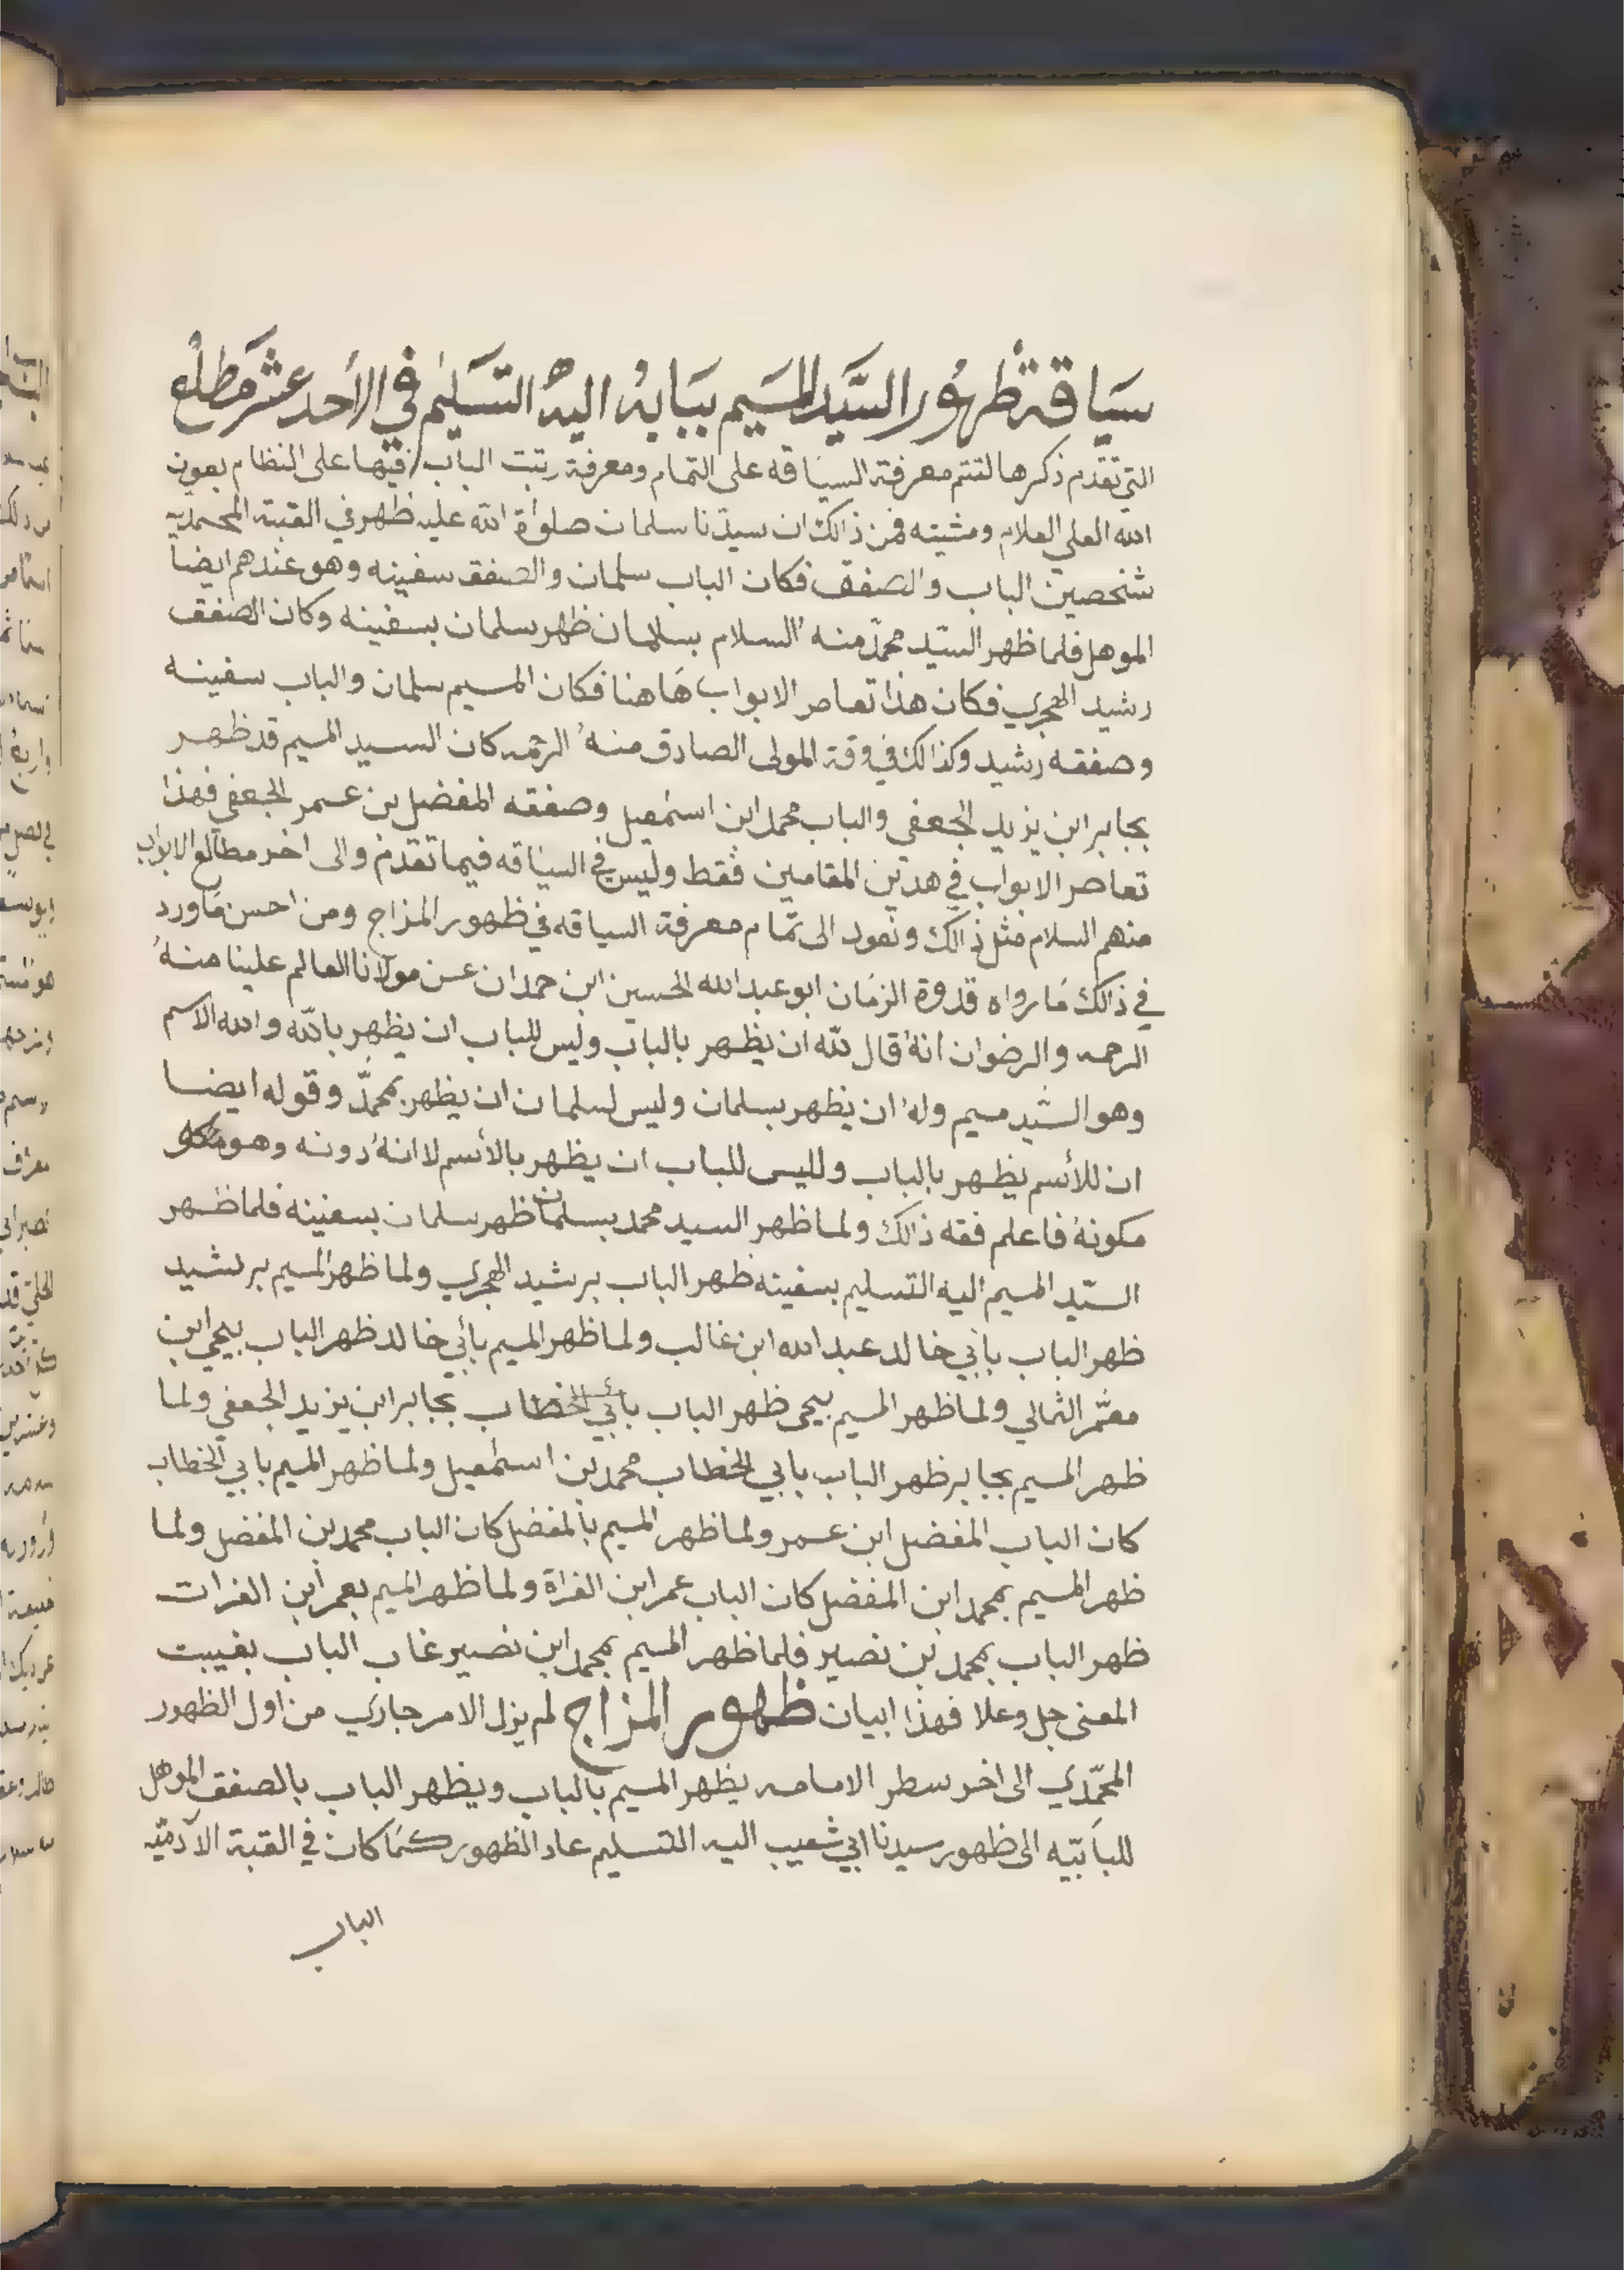 سياقة ظهور السيد الميم ببابه اليه التسليم في الأحد عشر مطلع
التي تقدم ذكرها لتتم معرفة السياقه على التمام ومعرفة رتبت الباب فيها على النظام بعون
الله العلي العلام ومشيته فمن ذالك ان سيدنا سلمان صلواة الله عليه ظهر في القبة المحمديه
شخصين الباب والصفق فكان الباب سلمان والصفق سفينه وهو عندهم ايضا
الموهل فلما ظهر السيد محمد منه السلام بسلمان ظهر سلمان بسفينه وكان الصفق
رشيد الهجري فكان هذا تعاصر الابواب هاهنا فكان الميم سلمان والباب سفينه
وصفقه رشيد وكذالك في وقة المولى الصادق منه الرحمه كان السيد الميم قد ظهر
بجابر ابن يزيد الجعفي والباب محمد ابن اسمعيل وصفقه المفضل بن عمر الجعفي فهذا
تعاصر الابواب في هدين المقامين فقط وليس في السياقه فيما تقدم والى اخر مطالع الابواب
منهم السلام مثل ذالك ونعود الى تمام معرفة السياقه في ظهور المزاج ومن احسن ماورد
في ذالك مارواه قدوة الزمان ابو عبد الله الحسين ابن حمدان عن مولانا العالم علينا منه
الرحمه والرضوان انه قال لله ان يظهر بالباب وليس للباب ان يظهر بالله والله الاسم
وهو السيد ميم وله ان يظهر بسلمان وليس لسلمان ان يظهر بمحمد وقوله ايضا
ان للأسم يظهر بالباب ولليس للباب ان يظهر بالأسم لاانه دونه وهو
مكونه فاعلم فقه ذالك ولما ظهر السيد محمد بسلمان ظهر سلمان بسفينه فلما ظهر
السيد الميم اليه التسليم بسفينه ظهر الباب برشيد الهجري ولما ظهر الميم برشيد
ظهر الباب بأبي خالد عبد الله ابن غالب ولما ظهر الميم بأبي خالد ظهر الباب بيحيى ابن
معمر الثمالي ولما ظهر الميم بيحى ظهر الباب بأبي الخطاب بجابر ابن يزيد الجعفي ولما
ظهر الميم بجابر ظهر الباب بابي الخطاب محمد بن اسمعيل ولما ظهر الميم بابي الخطاب
كان الباب المفضل ابن عمر ولما ظهر الميم بالمفضل كان الباب محمد بن المفضل ولما
ظهر الميم بمحمد ابن المفضل كان الباب عمر ابن الفراة ولما ظهر الميم بعمر ابن الفرات
ظهر الباب بمحمد بن نصير فلما ظهر الميم بمحمد ابن نصير غاب الباب بغيبت
المعنى جل وعلا فهذا ابيان ظهور المزاج لم يزل الامر جاري من اول الظهور
المحمدي الى اخر سطر الامامه يظهر الميم بالباب ويظهر الباب بالصفق الموهل
للبابيه الى ظهور سيدنا ابي شعيب اليه التسليم عاد الظهور كما كان في القبة الآدميه
الباب